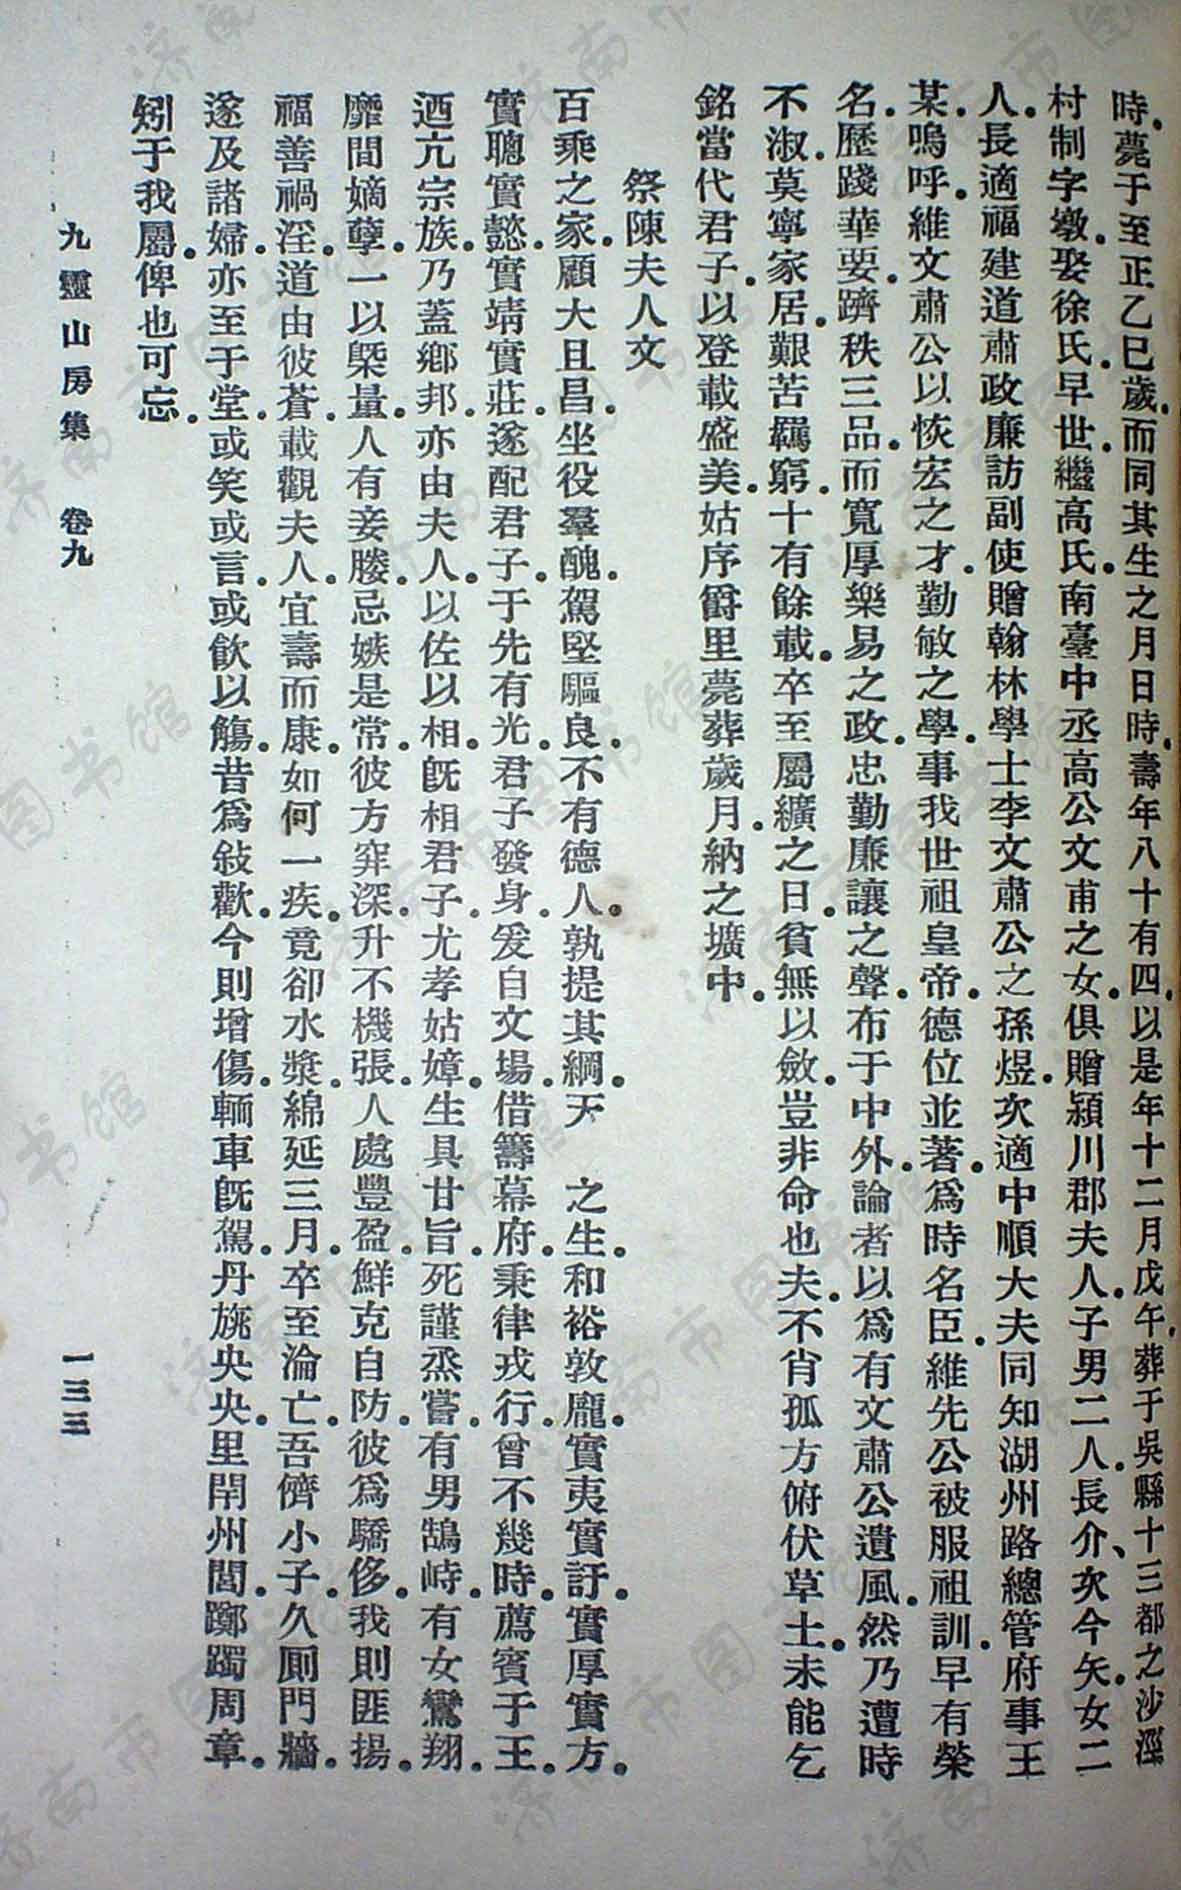 時。薨于至正乙巳歲。而同其生之月日時。壽年八十有四。以是年十二月戊午。葬于吳縣十三都之沙溼
村制字墩。娶徐氏。早世。繼高氏。南臺中丞高公文甫之女。俱贈潁川郡夫人。子男二人。長介、次今矢。女二
人。長適福建道肅政廉訪副使贈翰林學士李文肅公之孫煜。次適中順大夫同知湖州路總管府事王
某。嗚呼。維文肅公以恢宏之才。勤敏之學。事我世祖皇帝。德位並著。爲時名臣。維先公被服祖訓。早有榮
名。歷踐華要。躋秩三品。而寬厚樂易之政。忠勤廉讓之聲。布于中外。論者以爲有文肅公遺風。然乃遭時
不淑。莫寧家居。艱苦羈窮。十有餘載。卒至屬纊之日。貧無以斂。豈非命也夫。不肖孤方俯伏草土。未能乞
銘當代君子。以登載盛美。姑序爵里薨葬歲月。納之壙中。
祭陳夫人文
百乘之家。顧大且昌。坐役羣醜。駕堅驅良。不有德人。孰提其綱。天 之生。和裕敦龐。實夷實訏。實厚實方。
實聰實懿。實靖實莊。遂配君子。于先有光。君子發身。爰自文場。借籌幕府。秉律戎行。曾不幾時。薦賓于王。
迺亢宗族。乃蓋鄉邦。亦由夫人。以佐以相。旣相君子。尤孝姑嫜。生具甘旨。死謹烝嘗。有男鵠峙。有女鸞翔。
靡間嫡孽。一以槩量。人有妾媵。忌嫉是常。彼方穽深。升不機張。人處豐盈。鮮克自防。彼爲驕侈。我則匪揚。
福善禍淫。道由彼蒼。載觀夫人。宜壽而康。如何一疾。竟卻水漿。綿延三月。卒至淪亡。吾儕小子。久厠門牆。
遂及諸婦。亦至于堂。或笑或言。或飲以觴。昔爲敍歡。今則增傷。輀車旣駕。丹旐央央。里閈州閭。躑躅周章。
矧于我屬。俾也可忘。
九靈山房集 卷九 一三三